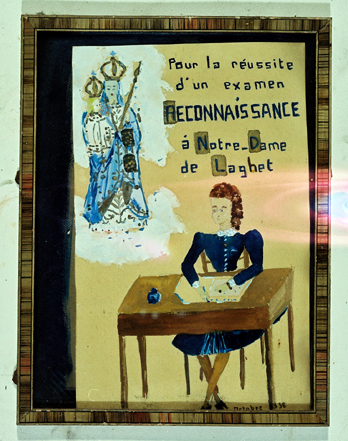 Pour la réussite
d'un examen
RECONNAISSANCE
à Notre-Dame
de Laghet